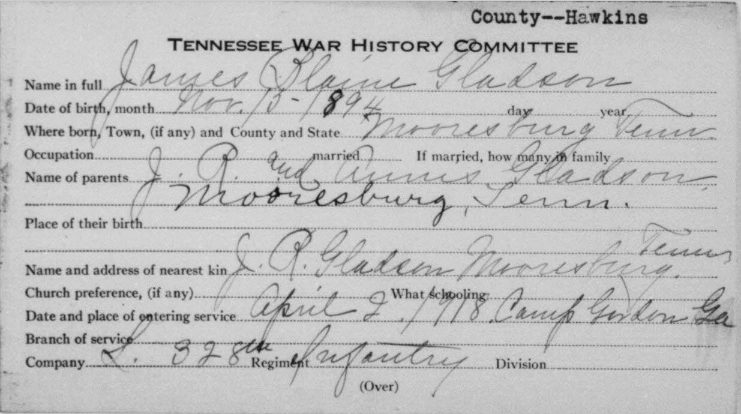 County--Hawkins
TENNESSEE WAR HISTORY COMMITTEE
Name in full James Blaine Gladson
Date of birth, month Nov. 13 - 1894 day year
Where born, Town, (if any) and County and State Mooresburg Tenn.
Occupation married If married, how many in family
Name of parents J. R. and Annis Gladson,
Mooresburg, Tenn.
Place of their birth
Name and address of nearest kin J. R. Gladson Mooresburg. Tenn
Church preference, (if any) What schooling
Date and place of entering service April 2, 1918 Camp Gordon Ga
Branch of service
Company L. 328th Regiment Infantry Division
(Over)